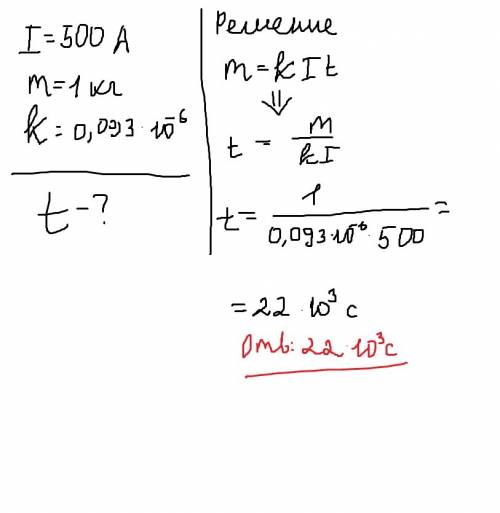 I = 500 A
m = 1 кг
k = 0,093 · 10⁻⁶
t - ?
Решение
m = k I t
⇓
t = m / kI
t = 1 / 0,093·10⁻⁶ · 500 =
= 22 · 10³ с
Отв: 22 · 10³ с